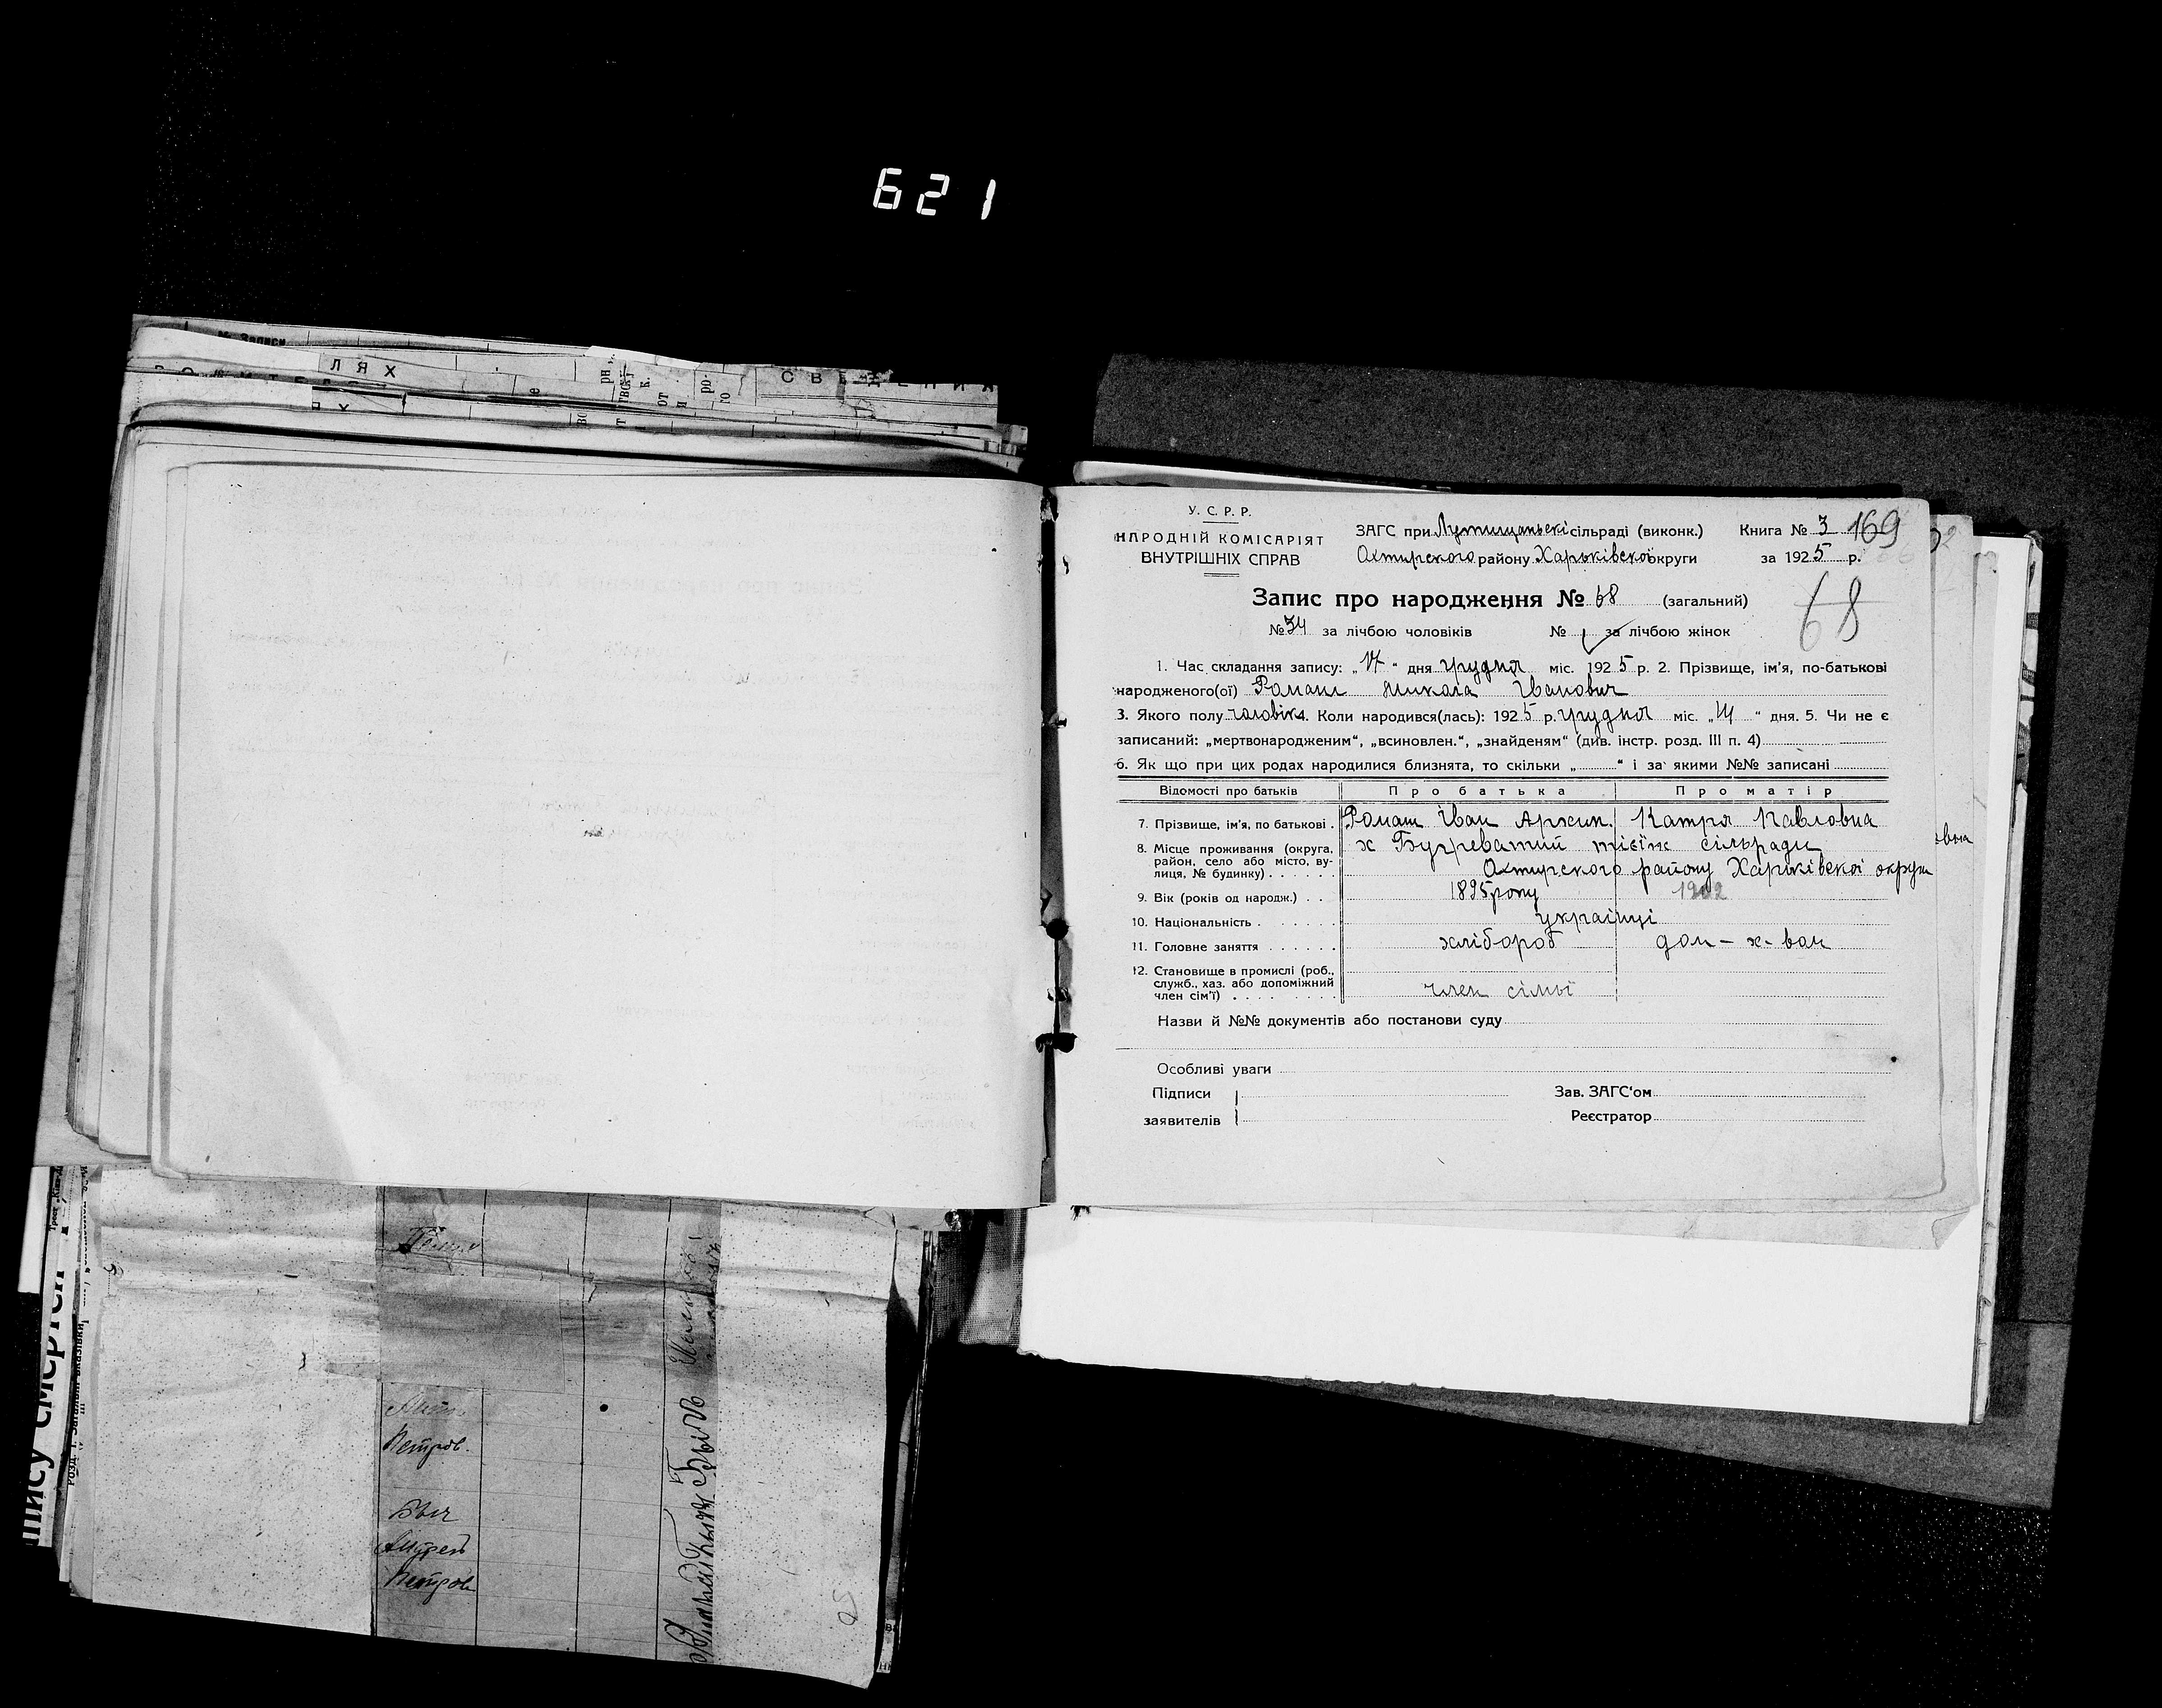 621
№ Записи
ЛЯХ
У. С. Р. Р.
НАРОДНІЙ КОМІСАРІЯТ
ВНУТРІШНІХ СПРАВ
ЗАГС при Лутищанскі сільраді (виконк.)
Охтирского району Харьківскої округи
Книга № 3 169
за 1925 р.
Запис про народження № 68 (загальний)
68
№ 34 за лічбою чоловіків № за лічбою жінок
1. Час складання запису: „17“ дня грудня міс. 1925 р. 2. Прізвище, ім'я, по-батькові
народженого(ої) Ромаш Микола Іванович
3. Якого полу чоловік 4. Коли народився(лась): 1925 р. грудня міс. „14“ дня. 5. Чи не є
записаний: „мертвонародженим“, „всиновлен.“, „знайденям“ (див. інстр. розд. III п. 4)
6. Як що при цих родах народилися близнята, то скільки „ “ і за якими №№ записані
Відомості про батьків Про батька Про матір
7. Прізвище, ім'я, по батькові . Ромаш Іван Архип. Катря Павловна
8. Місце проживання (округа, район, село або місто, вулиця, № будинку) . . . . . . х Бугреватий тієїж сільради
Охтирского району Харьківскої округи
9. Вік (років од народж.) . . 1895 року 1902
10. Національність . . . . . . українці
11. Головне заняття . . . . . . хлібороб дом-х-вом
12. Становище в промислі (роб., служб., хаз. або допоміжний член сім'ї) . . . . член сімьї
Назви й №№ документів або постанови суду
Особливі уваги
Підписи
заявителів
Зав. ЗАГС'ом
Реєстратор
Петров.
Быч
Андрей
Петров